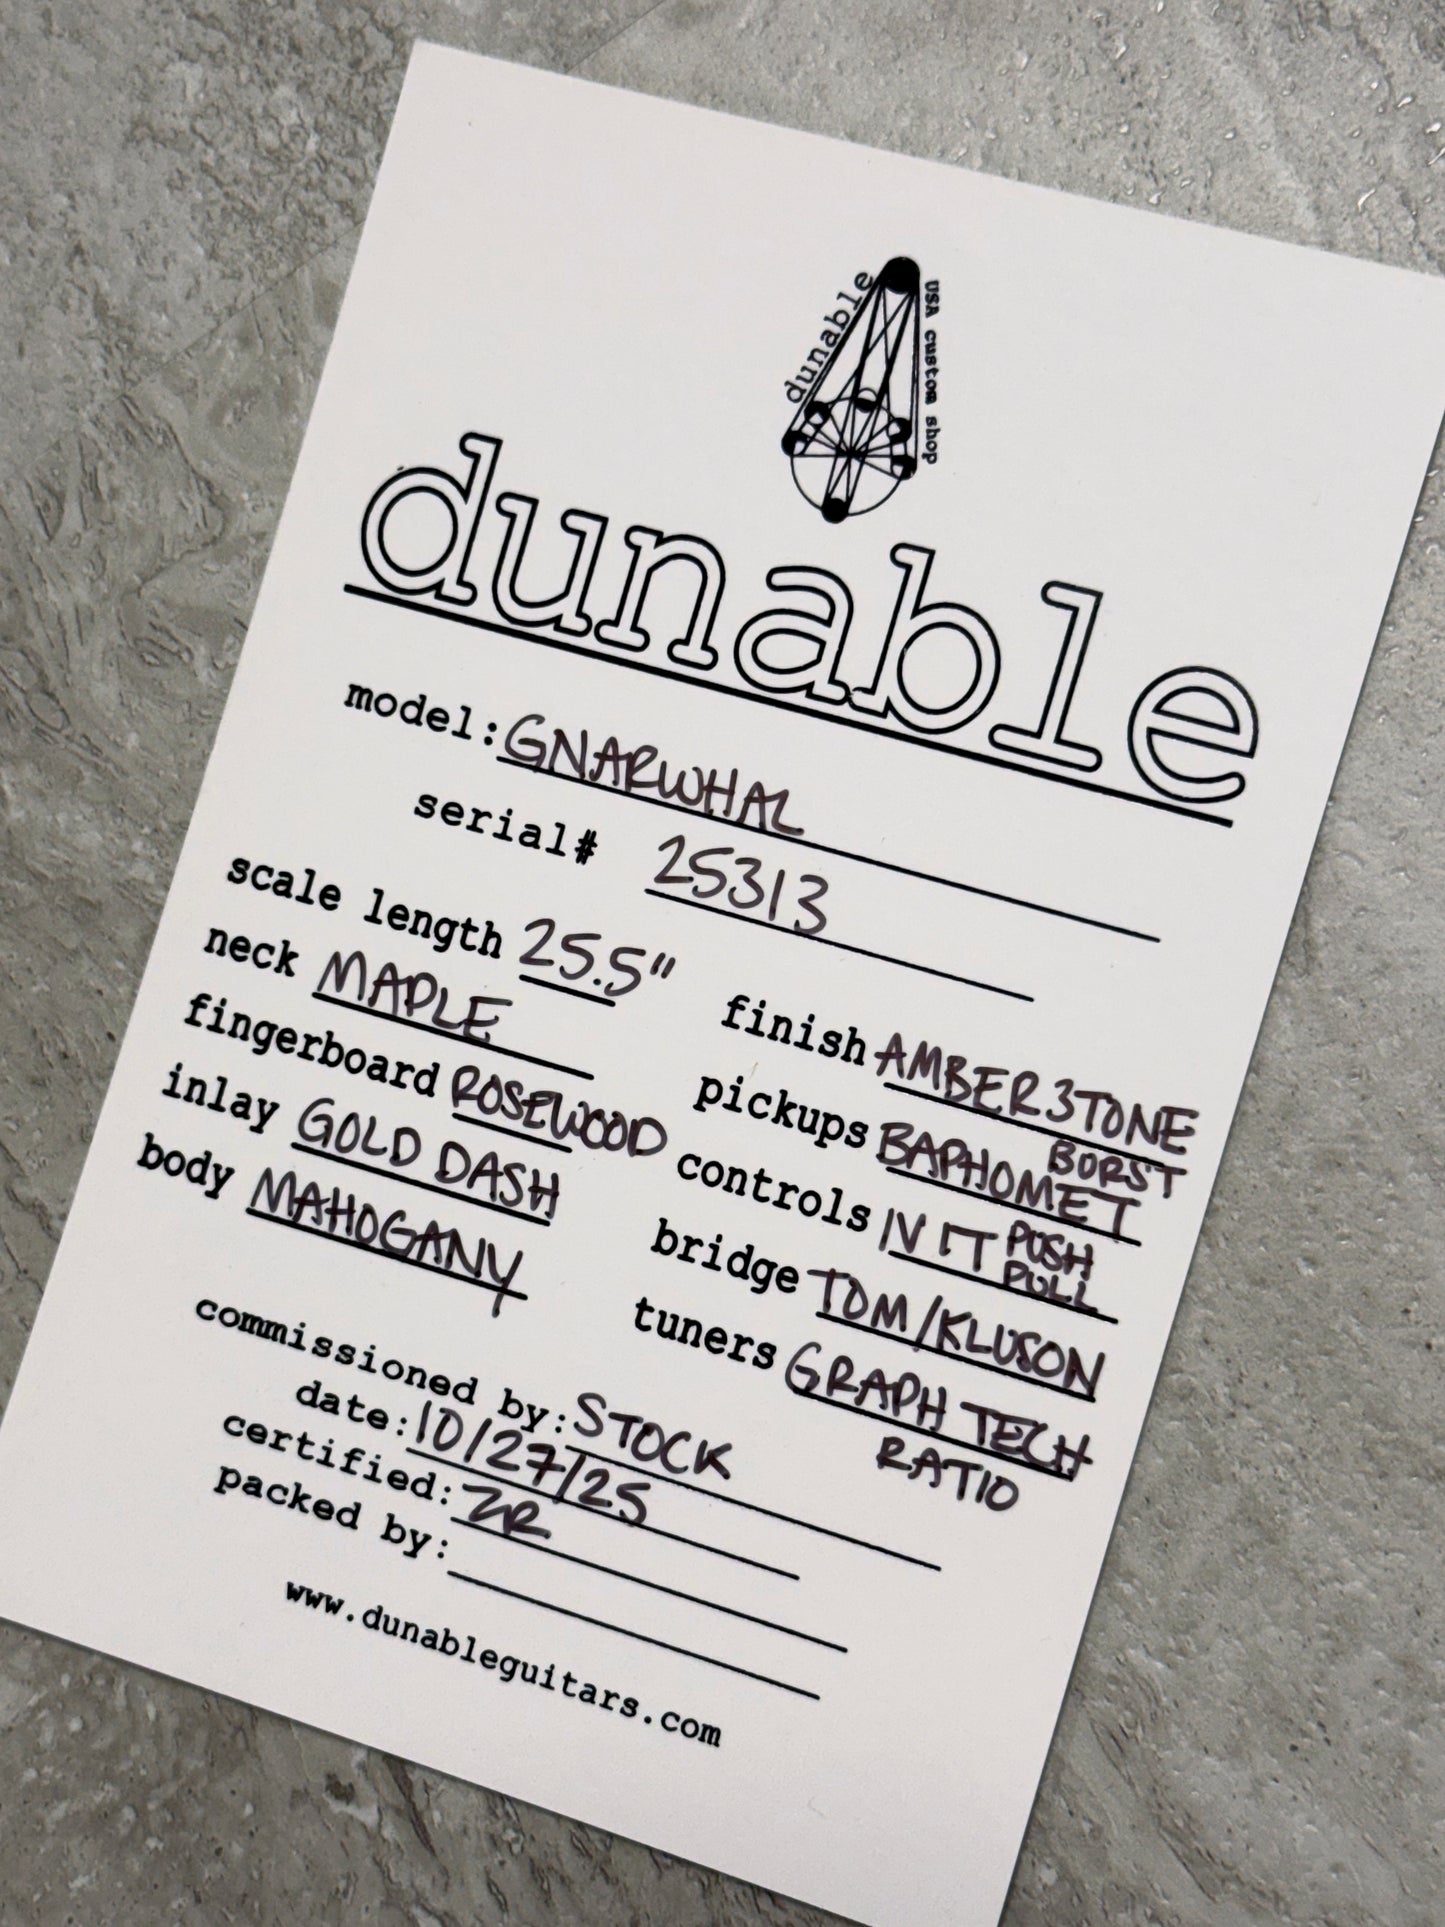 dunable
USA custom shop
dunable
model: GNARWHAL
serial# 25313
scale length 25.5"
neck MAPLE
fingerboard ROSEWOOD
inlay GOLD DASH
body MAHOGANY
finish AMBER 3TONE BURST
pickups BAPHOMET
controls 1V 1T PUSH PULL
bridge TOM/KLUSON
tuners GRAPH TECH RATIO
commissioned by: STOCK
date: 10/27/25
certified: ZR
packed by:
www.dunableguitars.com